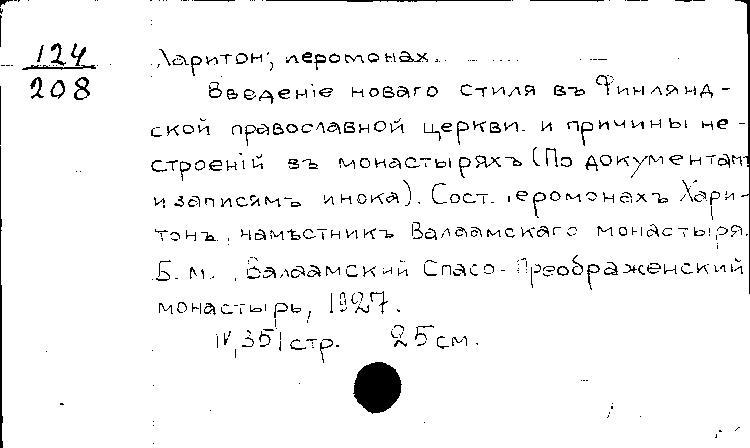 124
208
Харитон, иеромонах.
Введеніе новаго стиля въ Финлянд-
ской православной церкви и причины не-
строеній въ монастыряхъ (По документам
и записямъ инока). Сост. іеромонахъ Хари-
тонъ, намѣстникъ Валаамскаго монастыря.
Б. м., Валаамский Спасо-Преображенский
монастырь, 1927.
IV, 351 стр. 25 см.